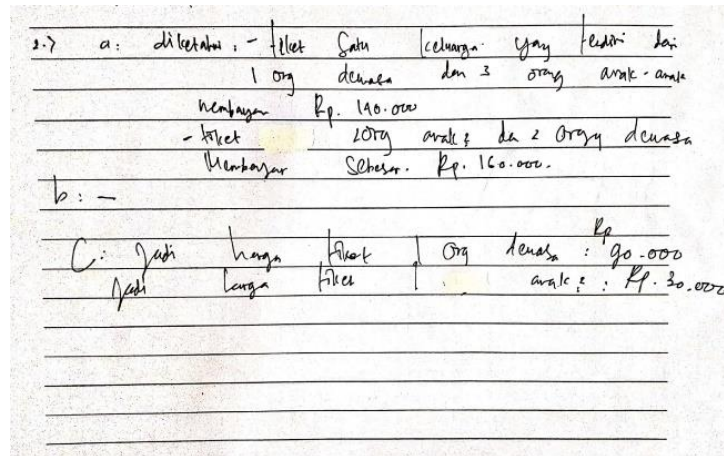 2.> a: diketahui : - tiket Satu keluarga yag terdiri dari
1 org dewasa dan 3 orang anak-anak
membayar Rp. 140.000
- tiket 2 org anak2 dan 2 orgg dewasa
Membayar Sebesar. Rp. 160.000.
b : -
C : Jadi harga tiket 1 org dewasa : Rp 90.000
Jadi harga tiket 1 anak2 : Rp. 30.000